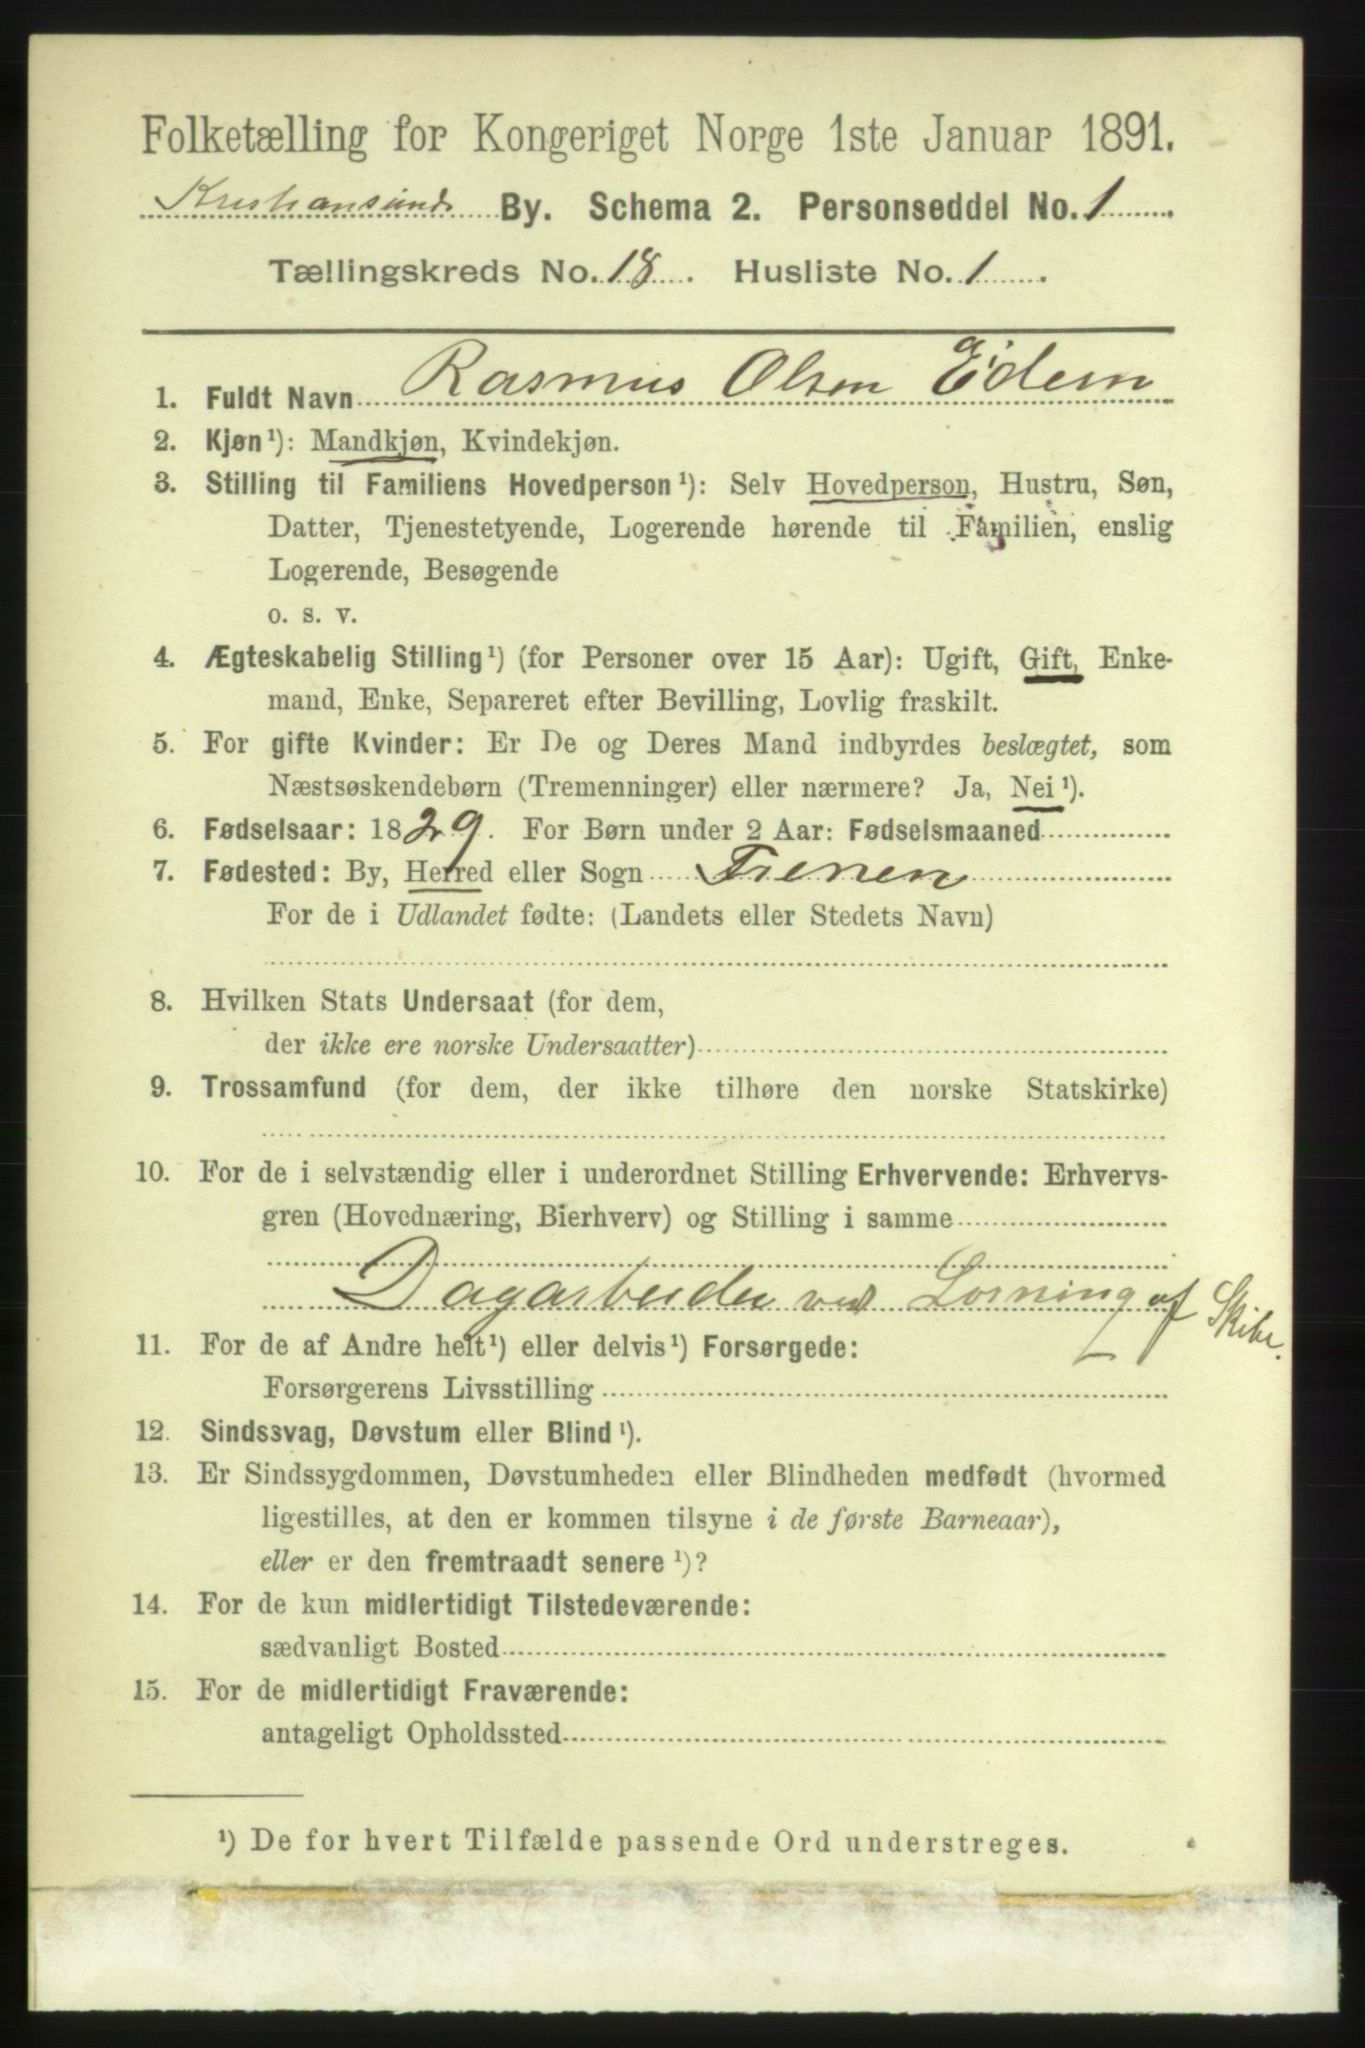 Folketælling for Kongeriget Norge 1ste Januar 1891.
Kristiansunds By. Schema 2. Personseddel No. 1.
Tællingskreds No. 18. Husliste No. 1.
1. Fuldt Navn Rasmus Olsen Eidem
2. Kjøn ¹): Mandkjøn, Kvindekjøn.
3. Stilling til Familiens Hovedperson ¹): Selv Hovedperson, Hustru, Søn,
Datter, Tjenestetyende, Logerende hørende til Familien, enslig
Logerende, Besøgende
o. s. v.
4. Ægteskabelig Stilling ¹) (for Personer over 15 Aar): Ugift, Gift, Enke-
mand, Enke, Separeret efter Bevilling, Lovlig fraskilt.
5. For gifte Kvinder: Er De og Deres Mand indbyrdes beslægtet, som
Næstsøskendebørn (Tremenninger) eller nærmere? Ja, Nei ¹).
6. Fødselsaar: 1829. For Børn under 2 Aar: Fødselsmaaned
7. Fødested: By, Herred eller Sogn
For de i Udlandet fødte: (Landets eller Stedets Navn)
8. Hvilken Stats Undersaat (for dem,
der ikke ere norske Undersaatter)
9. Trossamfund (for dem, der ikke tilhøre den norske Statskirke)
10. For de i selvstændig eller i underordnet Stilling Erhvervende: Erhvervs-
gren (Hovednæring, Bierhverv) og Stilling i samme
Dagarbeider ved Losning af Skibe.
11. For de af Andre helt ¹) eller delvis ¹) Forsørgede:
Forsørgerens Livsstilling
12. Sindssvag, Døvstum eller Blind ¹).
13. Er Sindssygdommen, Døvstumheden eller Blindheden medfødt (hvormed
ligestilles, at den er kommen tilsyne i de første Barneaar),
eller er den fremtraadt senere ¹)?
14. For de kun midlertidigt Tilstedeværende:
sædvanligt Bosted
15. For de midlertidigt Fraværende:
antageligt Opholdssted
¹) De for hvert Tilfælde passende Ord understreges.